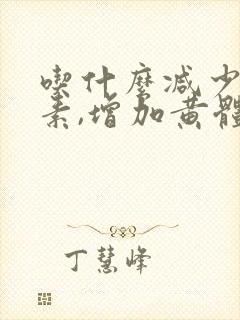 喫什麼減少
素,增加黃體
丁慧峰